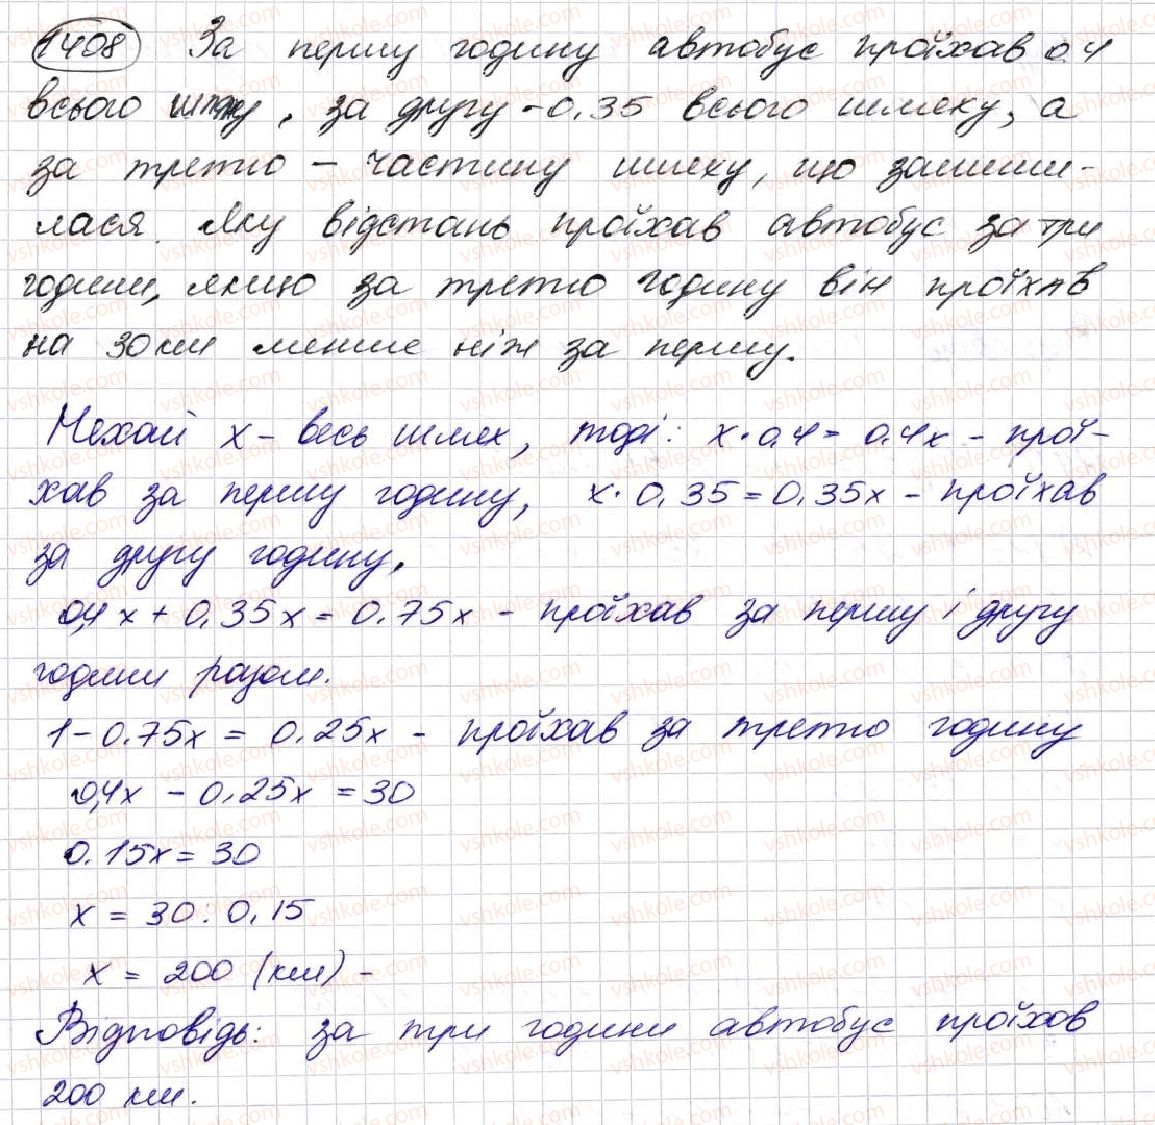 1408 За першу годину автобус проїхав 0.4
всього шляху, за другу - 0.35 всього шляху, а
за третю – частину шляху, що залиши-
лася. Яку відстань проїхав автобус за три
години, якщо за третю годину він проїхав
на 30 км менше ніж за першу.
Нехай x - весь шлях, тоді: x · 0,4 = 0.4x - прої-
хав за першу годину, x · 0,35 = 0,35x - проїхав
за другу годину,
0,4x + 0,35x = 0.75x - проїхав за першу і другу
години разом.
1 - 0.75x = 0.25x - проїхав за третю годину
0,4x - 0,25x = 30
0.15x = 30
x = 30 : 0,15
x = 200 (км) -
Відповідь: за три години автобус проїхав
200 км.